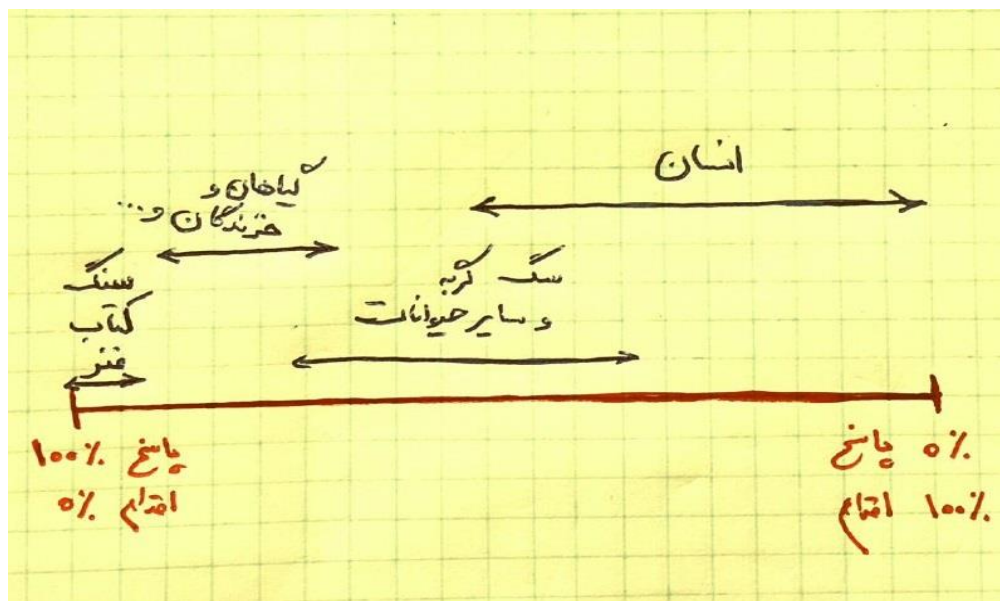 انسان
گیاهان و
خزندگان و...
سگ گربه
و سایر حیوانات
سنگ
کتاب
فنر
۰٪ پاسخ
۱۰۰٪ اقدام
پاسخ ۱۰۰٪
اقدام ۰٪